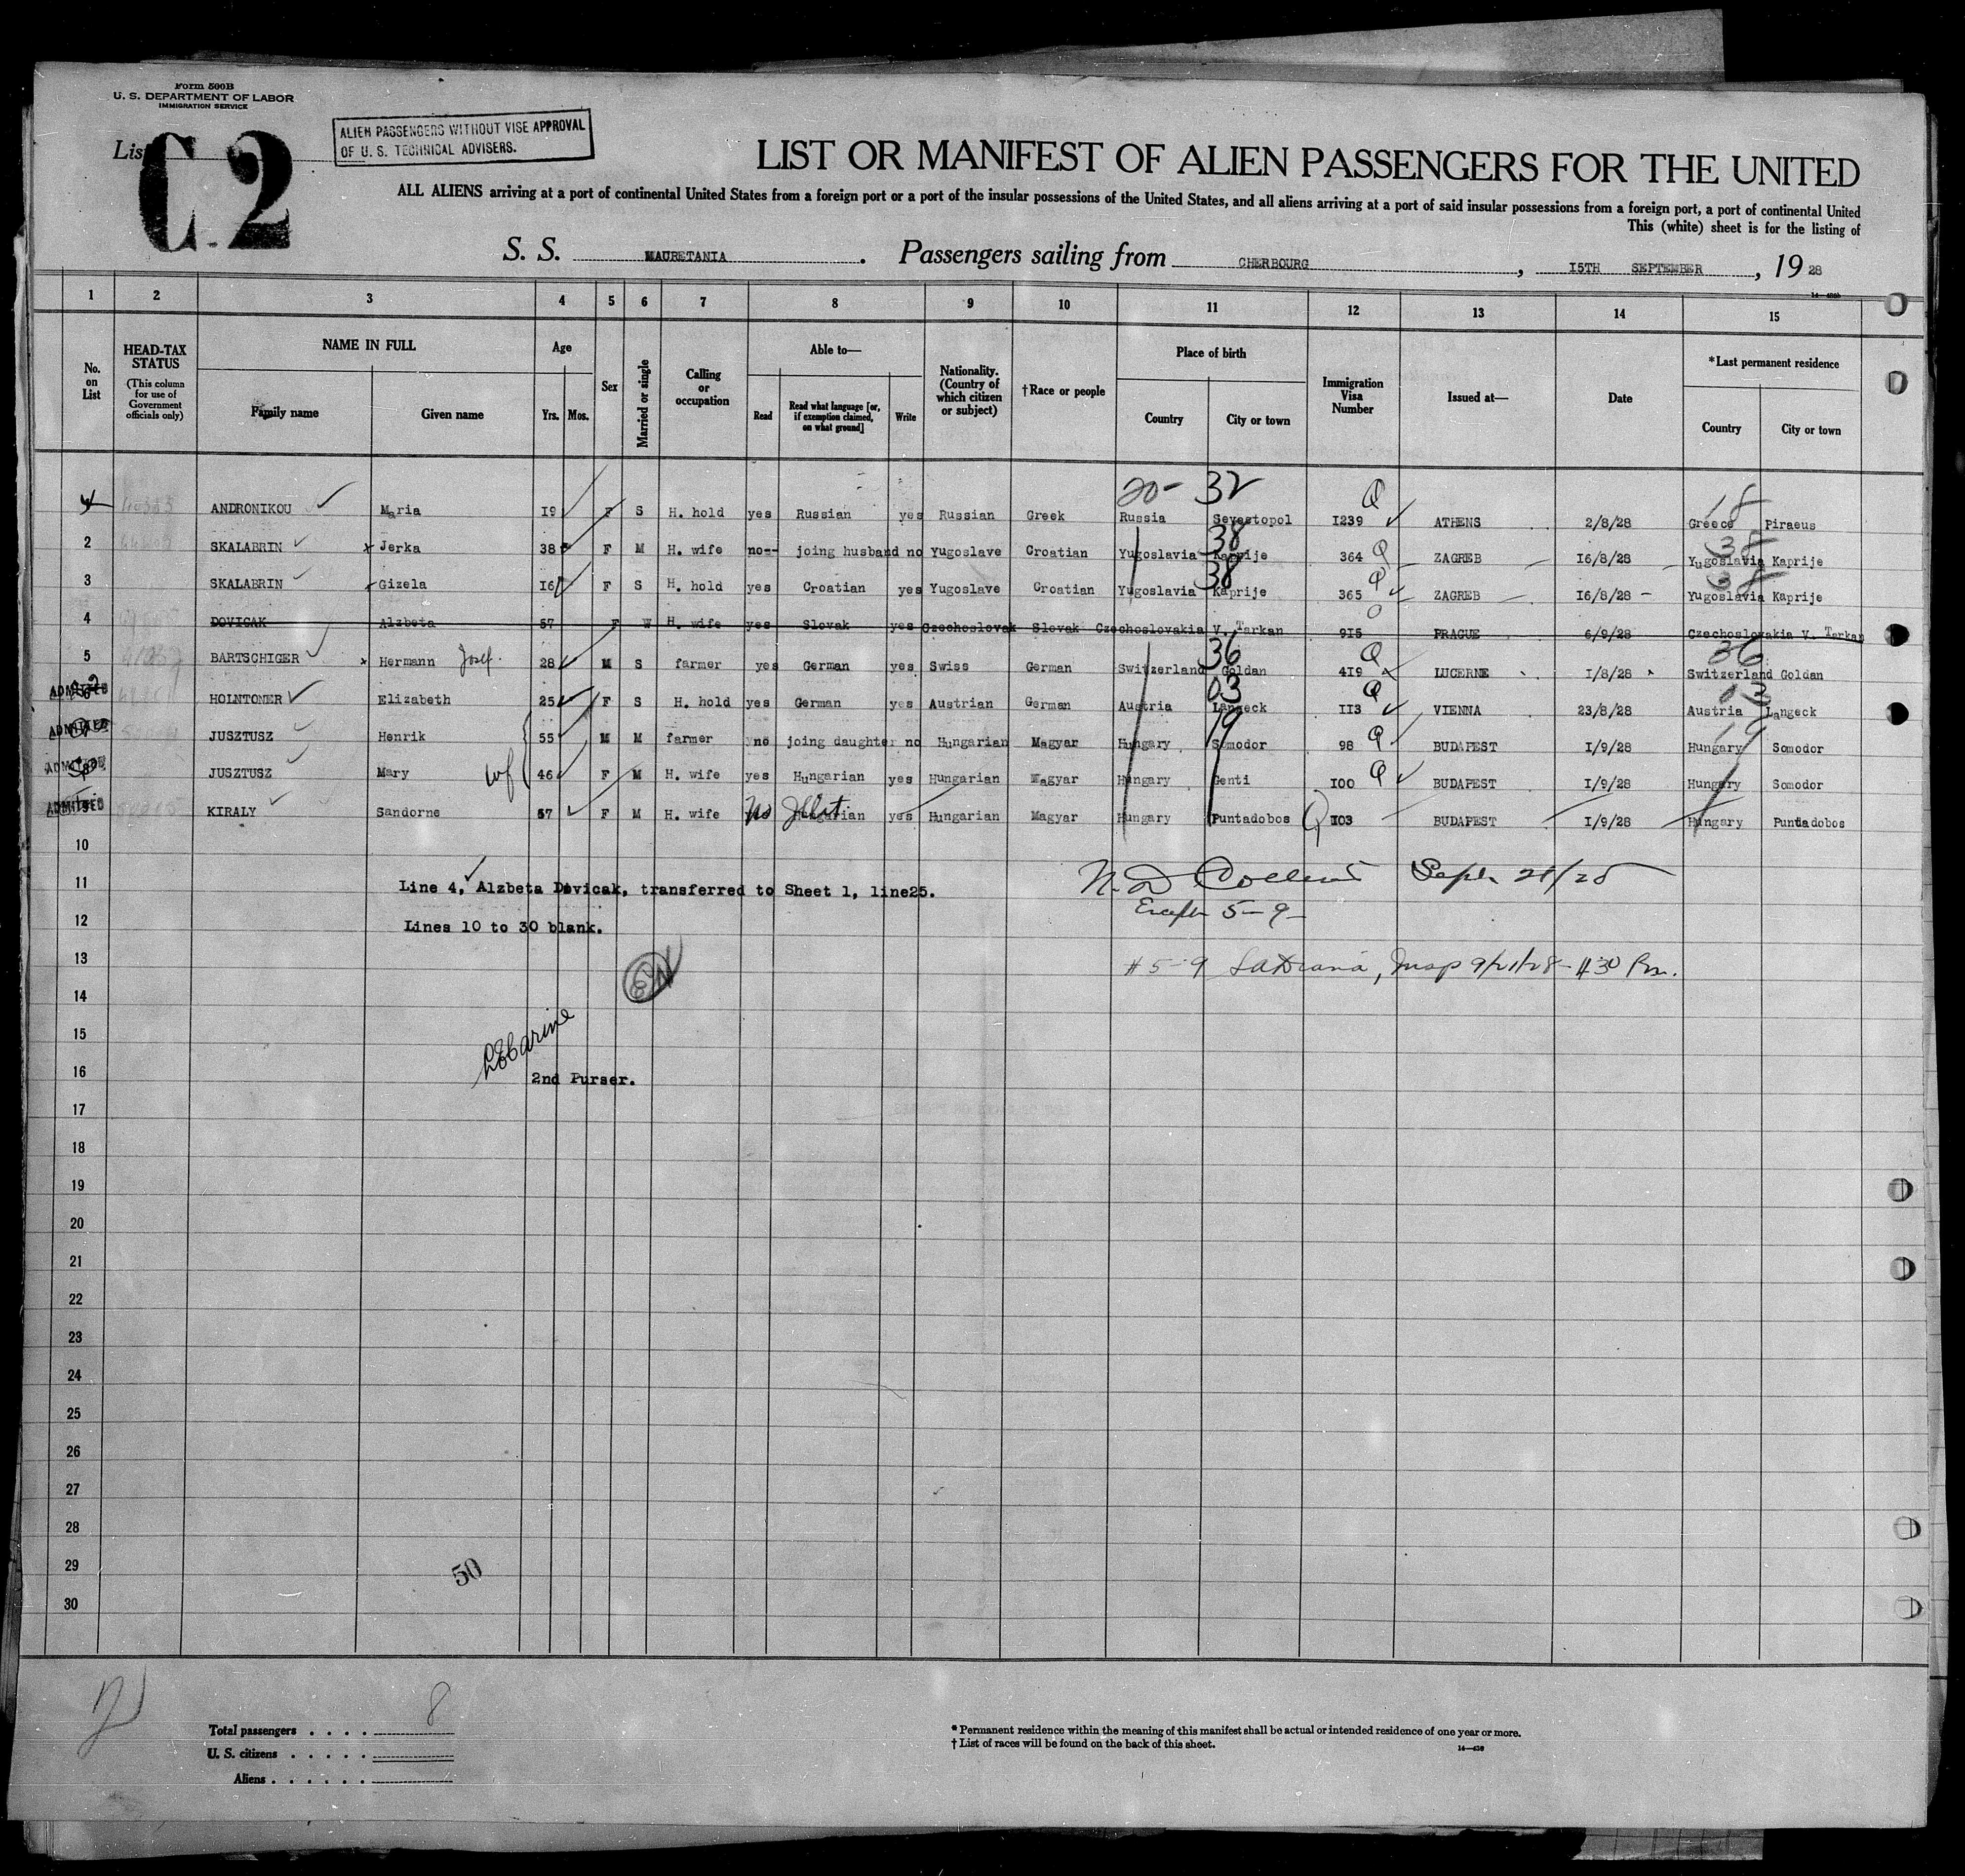 Form 500B
U. S. DEPARTMENT OF LABOR
IMMIGRATION SERVICE
List C 2
ALIEN PASSENGERS WITHOUT VISE APPROVAL
OF U. S. TECHNICAL ADVISERS.
LIST OR MANIFEST OF ALIEN PASSENGERS FOR THE UNITED
ALL ALIENS arriving at a port of continental United States from a foreign port or a port of the insular possessions of the United States, and all aliens arriving at a port of said insular possessions from a foreign port, a port of continental United
This (white) sheet is for the listing of
S. S. MAURETANIA. Passengers sailing from CHERBOURG, 15TH SEPTEMBER, 19 28
1 2 3 4 5 6 7 8 9 10 11 12 13 14 15
No. on List
HEAD-TAX STATUS (This column for use of Government officials only)
NAME IN FULL Family name Given name
Age Yrs. Mos.
Sex
Married or single
Calling or occupation
Able to— Read Read what language [or, if exemption claimed, on what ground] Write
Nationality. (Country of which citizen or subject)
†Race or people
Place of birth Country City or town
Immigration Visa Number
Issued at—
Date
*Last permanent residence Country City or town
20- 32 Q 18
ANDRONIKOU Maria 19 F S H. hold yes Russian yes Russian Greek Russia Sevestopol 1239 ATHENS 2/8/28 Greece Piraeus
38 Q 38
2 SKALABRIN x Jerka 38 F M H. wife no-- joing husband no Yugoslave Croatian Yugoslavia Kaprije 364 ZAGREB 16/8/28 Yugoslavia Kaprije
38 Q 38
3 SKALABRIN Gizela 16 F S H. hold yes Croatian yes Yugoslave Croatian Yugoslavia Kaprije 365 ZAGREB 16/8/28 Yugoslavia Kaprije
4 DOVICAK Alzbeta 57 F W H. wife yes Slovak yes Czechoslovak Slovak Czechoslovakia V. Tarkan 915 PRAGUE 6/9/28 Czechoslovakia V. Tarkan
36 Q 36
5 BARTSCHIGER x Hermann Josef. 28 M S farmer yes German yes Swiss German Switzerland Goldan 419 LUCERNE 1/8/28 Switzerland Goldan
03 Q 03
ADMITTED HOLNTONER Elizabeth 25 F S H. hold yes German yes Austrian German Austria Langeck 113 VIENNA 23/8/28 Austria Langeck
19 Q 19
ADMITTED JUSZTUSZ Henrik 55 M M farmer no joing daughter no Hungarian Magyar Hungary Somodor 98 BUDAPEST 1/9/28 Hungary Somodor
ADMITTED JUSZTUSZ Mary wf 46 F M H. wife yes Hungarian yes Hungarian Magyar Hungary Genti 100 Q BUDAPEST 1/9/28 Hungary Somodor
ADMITTED KIRALY Sandorne 57 F M H. wife no Hungarian yes Hungarian Magyar Hungary Puntadobos 1103 BUDAPEST 1/9/28 Hungary Puntadobos
10
11 Line 4, Alzbeta Dovicak, transferred to Sheet 1, line25. N. D. Collins Sept. 21/28
Except 5-9-
12 Lines 10 to 30 blank.
13 #5-9 Insp 9/21/28
14
15
16 2nd Purser.
17
18
19
20
21
22
23
24
25
26
27
28
29 50
30
Total passengers . . . . 8
U. S. citizens . . . . .
Aliens . . . . . .
* Permanent residence within the meaning of this manifest shall be actual or intended residence of one year or more.
† List of races will be found on the back of this sheet.